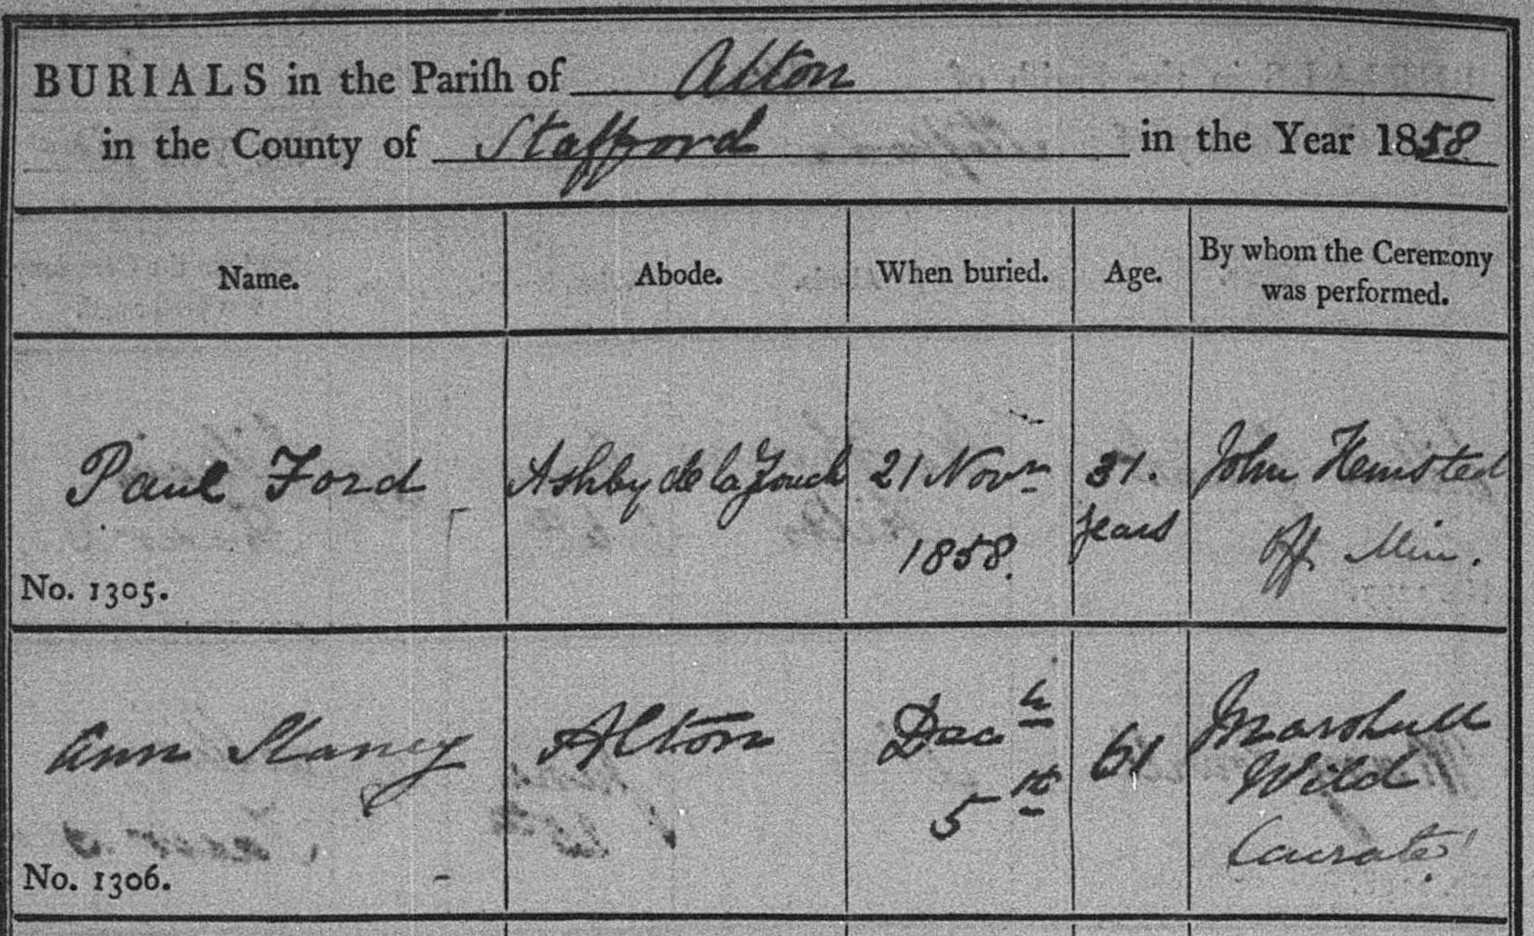 BURIALS in the Pariſh of Alton
in the County of Stafford in the Year 1858
Name. Abode. When buried. Age. By whom the Ceremony was performed.
Paul Ford Ashby de la Zouch 21 Novr 31. John Hemsted
1858. years Off. Min.
No. 1305.
Ann Slaney Alton Decr 61 Marshall
5th Wild
Curate
No. 1306.